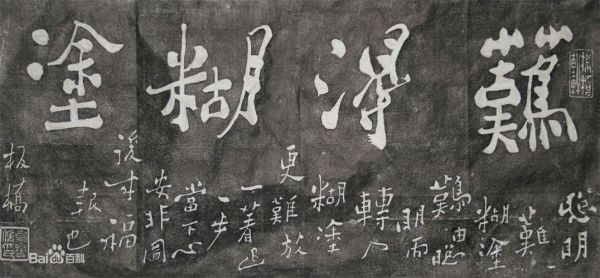 難得糊塗
聰明
難
糊塗
難由聰
明而
轉入
糊塗
更難放
一著退
一步
當下心
安非圖
後来福
報也
板橋
Bai百科